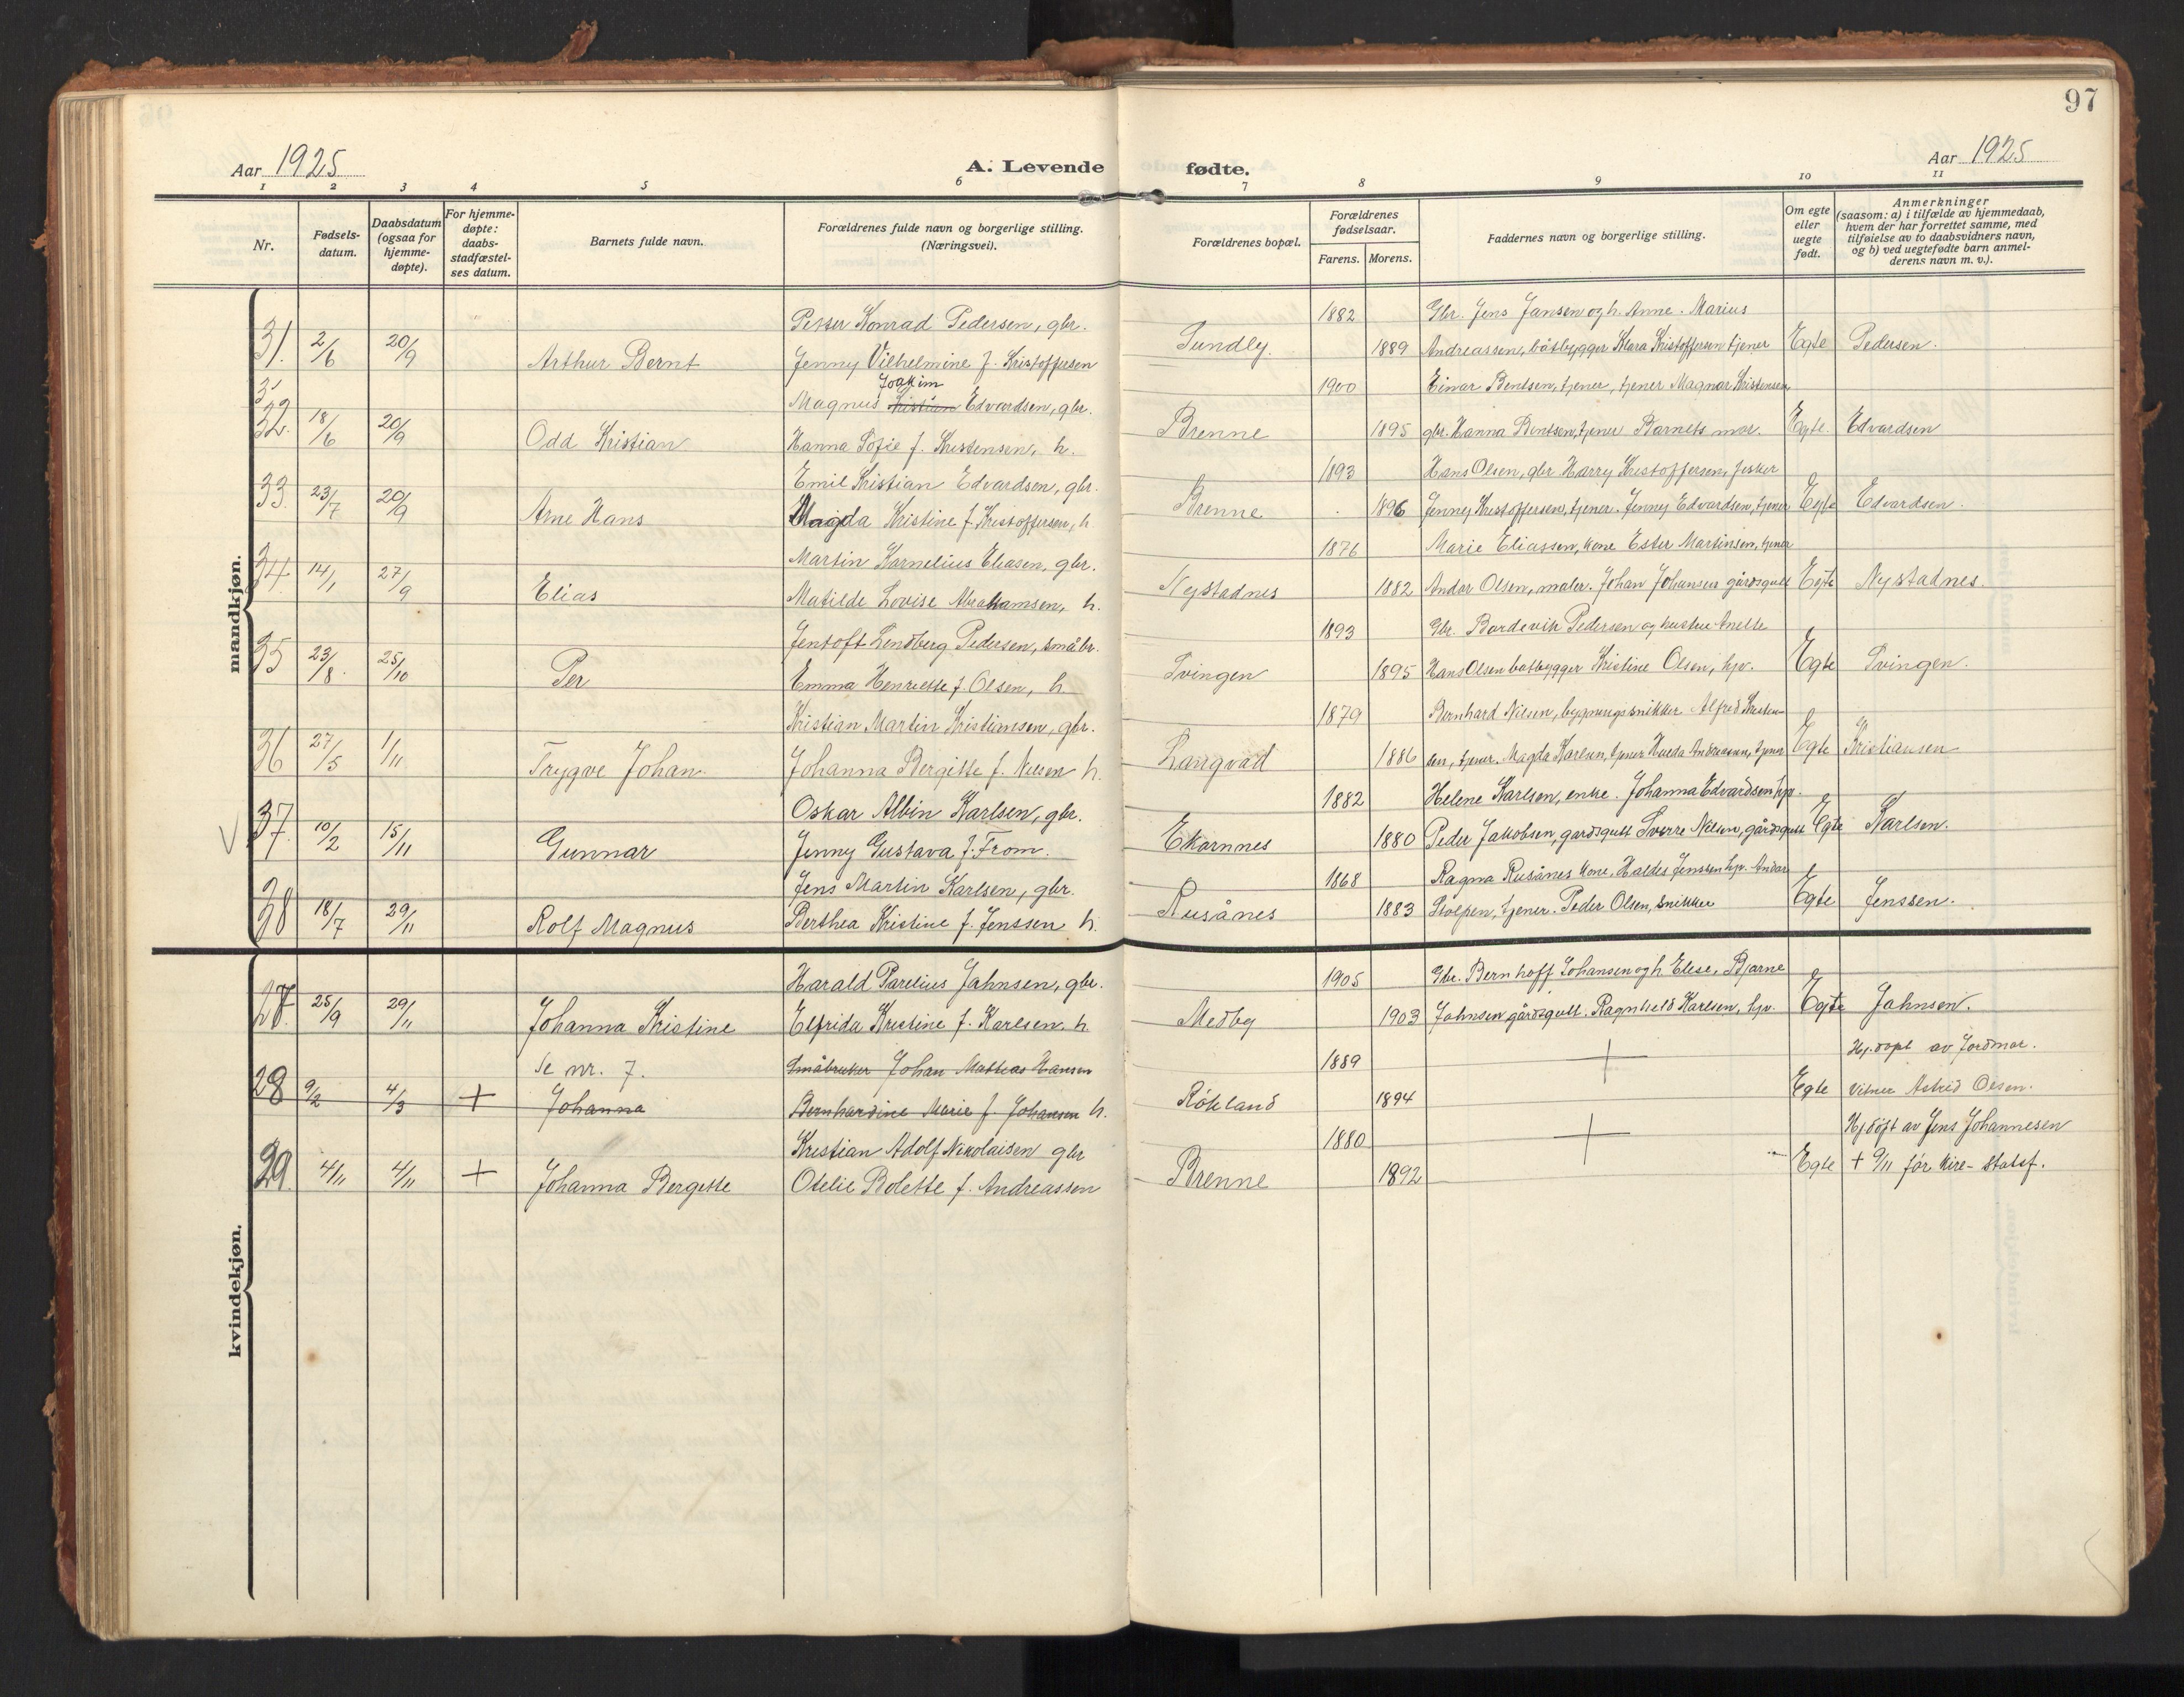 97
Aar 1925
A. Levende fødte.
Aar 1925
1 2 3 4 5 6 7 8 9 10 11
Nr.
Fødsels-
datum.
Daabsdatum
(ogsaa for
hjemme-
døpte).
For hjemme-
døpte:
daabs-
stadfæstel-
ses datum.
Barnets fulde navn.
Forældrenes fulde navn og borgerlige stilling.
(Næringsvei).
Forældrenes bopæl.
Forældrenes
fødselsaar.
Farens. Morens.
Faddernes navn og borgerlige stilling.
Om egte
eller
uegte
født.
Anmerkninger
(saasom: a) i tilfælde av hjemmedaab,
hvem der har forrettet samme, med
tilføielse av to daabsvidners navn,
og b) ved uegtefødte barn anmel-
derens navn m. v.).
mandkjøn.
Petter Konrad Pedersen, gbr. 1882 Gbr. Jens Jansen og h. Anne. Marius
31. 2/6 20/9 Arthur Bernt Jenny Vilhelmine f. Kristoffersen Sundby. 1889 Andreassen, båtbygger Klara Kristoffersen tjener Egte Pedersen.
Joakim
Magnus Kristian Edvardsen, gbr. 1900 Einar Bentsen, tjener, tjener Magnar Kristensen,
32. 18/6 20/9 Odd Kristian Hanna Sofie f. Kristensen, h. Brenne 1895 gbr. Hanna Bentsen, tjener Barnets mor. Egte. Edvardsen
Emil Kristian Edvardsen, gbr. 1893 Hans Olsen, gbr Harry Kristoffersen, fisker
33. 23/7 20/9 Arne Hans Magda Kristine f. Kristoffersen, h. Brenne 1896 Jenny Kristoffersen, tjener. Jenny Edvardsen, tjener Egte Edvardsen.
Martin Kornelius Eliasen, gbr. 1876 Marie Eliassen, kone Ester Martinsen, tjener
34. 14/1 27/9 Elias Matilde Lovise Abrahamsen, h. Nystadnes 1882 Andor Olsen, maler. Johan Johansen gårdsgutt Egte Nystadnes.
Jentoft Lendberg Pedersen, småbr. 1893 Gbr. Bardevik Pedersen og hustru Anette
35 23/8. 25/10 Per Emma Henriette f. Olsen, h. Svingen 1895 Hans Olsen båtbygger Kristine Olsen, hp. Egte Svingen.
Kristian Martin Kristiansen, gbr. 1879 Bernhard Nilsen, bygningssnikker Alfred Kristen-
36 27/5 1/11 Trygve Johan. Johanna Bergitte f. Nilsen h. Langvad 1886 sen, tjener. Magda Karlsen, tjener Hulda Andreassen, tjener Egte Kristiansen
Oskar Albin Karlsen, gbr. 1882 Helene Karlsen, enke. Johanna Edvardsen hp.
37. 10/2 15/11 Gunnar Jenny Gustava f. From. Ekornnes 1880 Peder Jakobsen, gardsgutt Sverre Nilsen, gårdsgutt Egte Karlsen.
Jens Martin Karlsen, gbr. 1868 Ragna Rusånes kone, Haldis Jenssen hp. Andor
38 18/7 29/11 Rolf Magnus Berthea Kristine f. Jenssen h. Rusånes 1883 Stolpen, tjener. Peder Olsen, snikker Egte Jenssen.
kvindekjøn.
Harald Parelius Jahnsen, gbr. 1905 Gbr. Bernhoff Johansen og h. Elise. Bjarne
27. 25/9 29/11 Johanna Kristine Elfrida Kristine f. Karlsen h. Medby 1903 Jahnsen gårdsgutt. Ragnhild Karlsen, hp. Egte Jahnsen.
Se nr. 7. Småbruker Johan Mathias Hansen 1889 + Hj. døpt av Jordmor.
28 9/2 4/3 + Johanna Bernhardine Marie f. Johansen h. Røkland 1894 Egte Vitner Astrid Olsen.
Kristian Adolf Nikolaisen gbr 1880 + Hj døpt av Jens Johannesen
29. 4/11 4/11 + Johanna Bergitte Otelie Bolette f. Andreassen Brenne 1892 Egte + 9/11 før kirk-statsf.